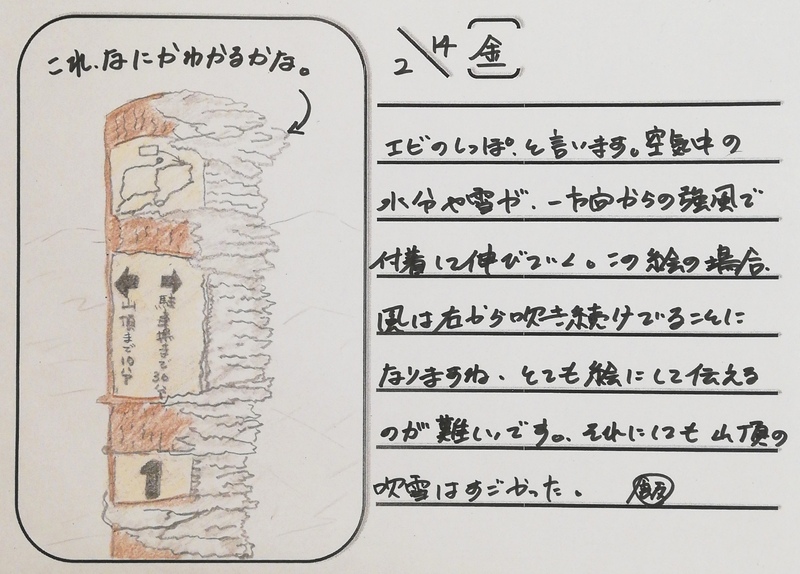 これ、なにかわかるかな。
山頂まで10分
まで30分
1
2/14 金
エビのしっぽ、と言います。空気中の
水分や雪が、一方向からの強風で
付着して伸びていく。この絵の場合、
風は右から吹き続けていることに
なりますね、とても絵にして伝える
のが難しいです。それにしても山頂の
吹雪はすごかった。